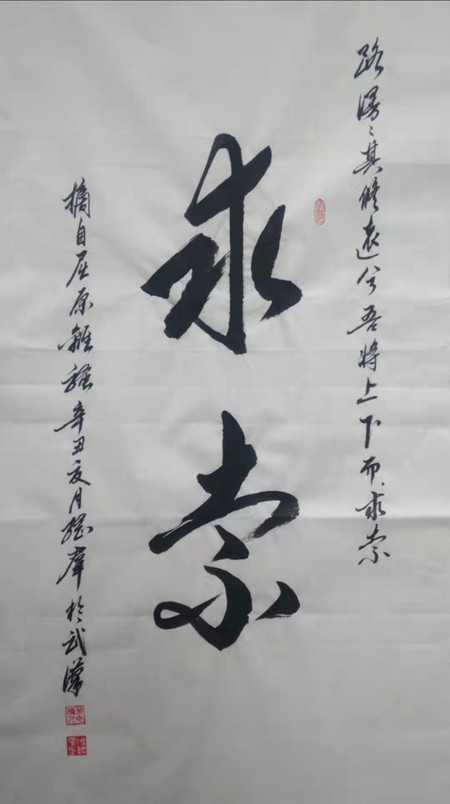 路漫〻其修遠兮吾將上下而求索
求索
摘自屈原離騷辛丑月群於武漢